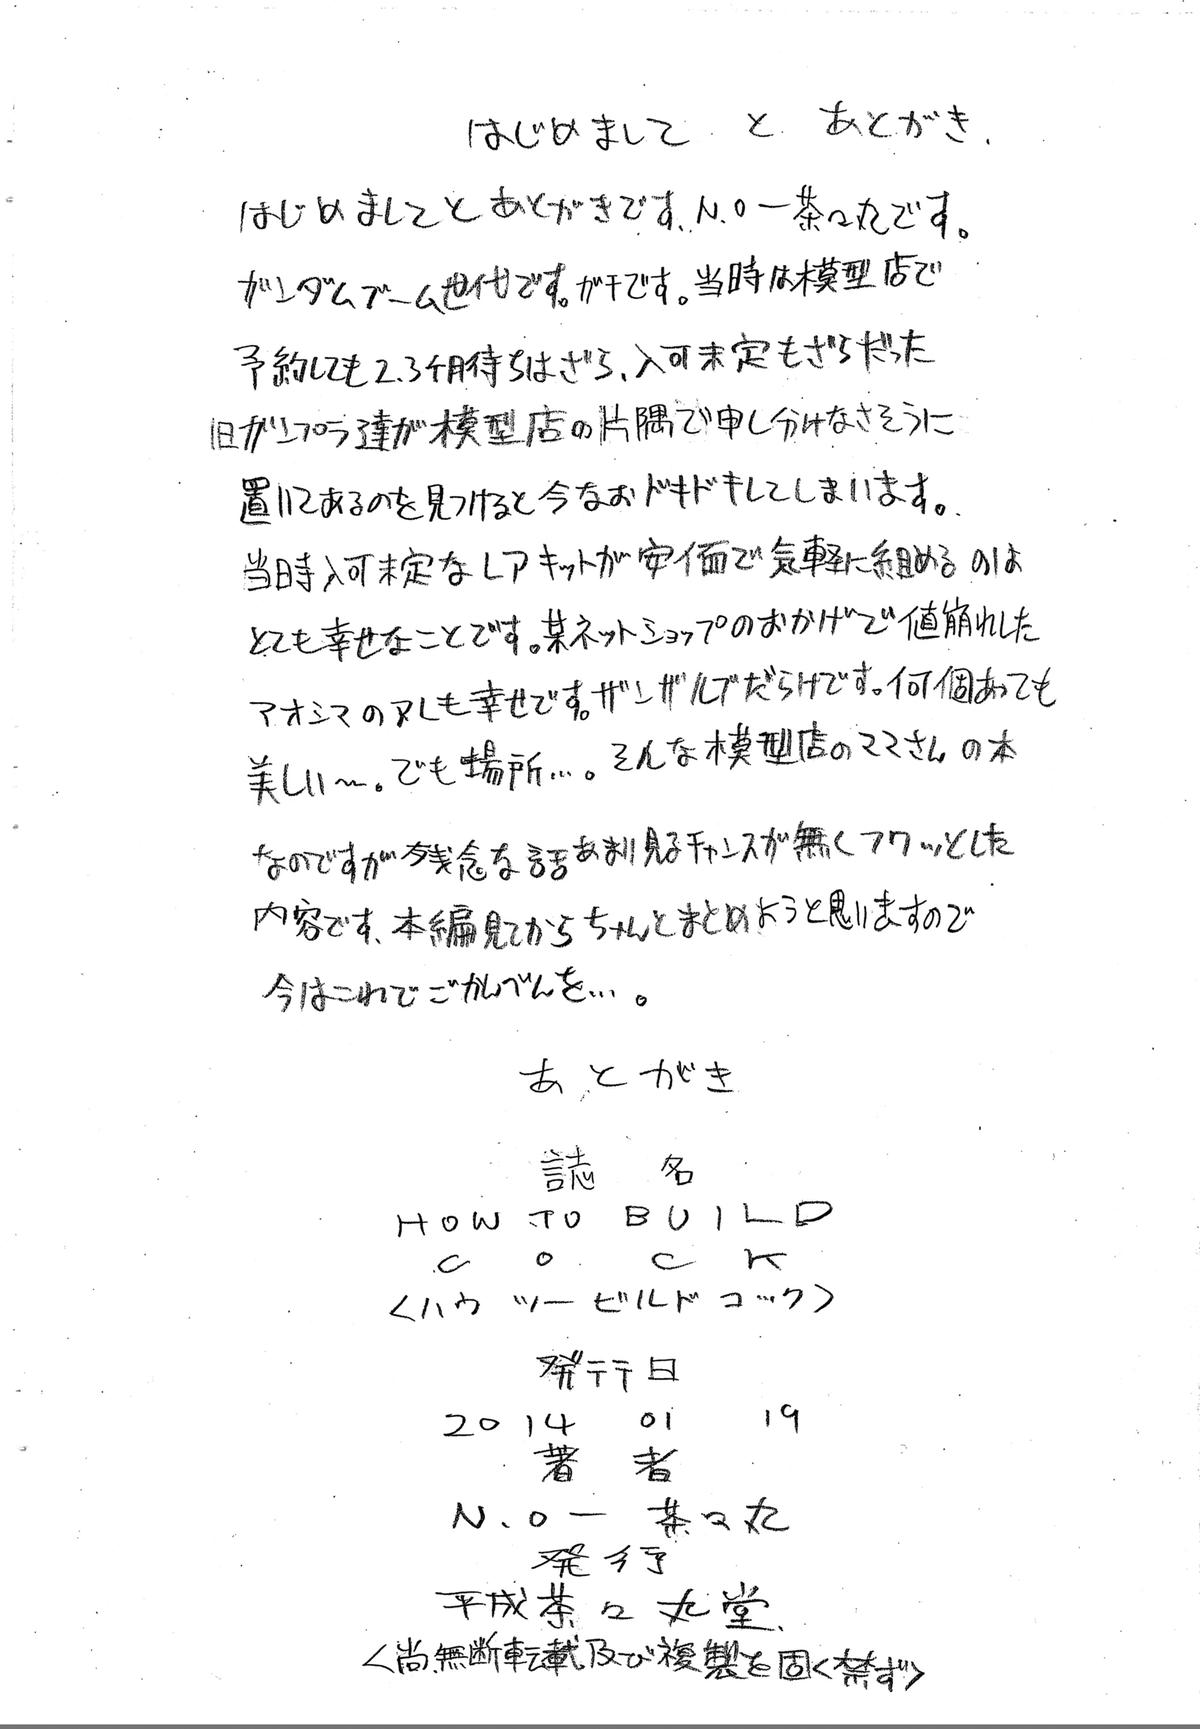 はじめまして と あとがき.
はじめましてとあとがきです、N.O一茶々丸です。
ガンダムブーム世代です。ガチです。当時は模型店で
予約しても2.3ヶ月待ちはざら、入可未定もざらだった
旧ガンプラ達が模型店の片隅で申し分けなさそうに
置いてあるのを見つけると今なおドキドキしてしまいます。
当時入可未定なレアキットが安価で気軽に組めるのは
とても幸せなことです。某ネットショップのおかげで値崩れした
アオシマのアレも幸せです。ザンザルブだらけです。何個あっても
美しい〜。でも場所…。そんな模型店のママさんの本
なのですが残念な話あまり見るチャンスが無くフワッとした
内容です、本編見てからちゃんとまとめようと思いますので
今はこれでごかんべんを…。
あとがき
誌 名
HOW TO BUILD
COCK
<ハウ ツー ビルド コック>
発行日
2014 01 19
著 者
N.O一 茶々丸
発行
平成茶々丸堂
<尚、無断転載及び複製を固く禁ず>